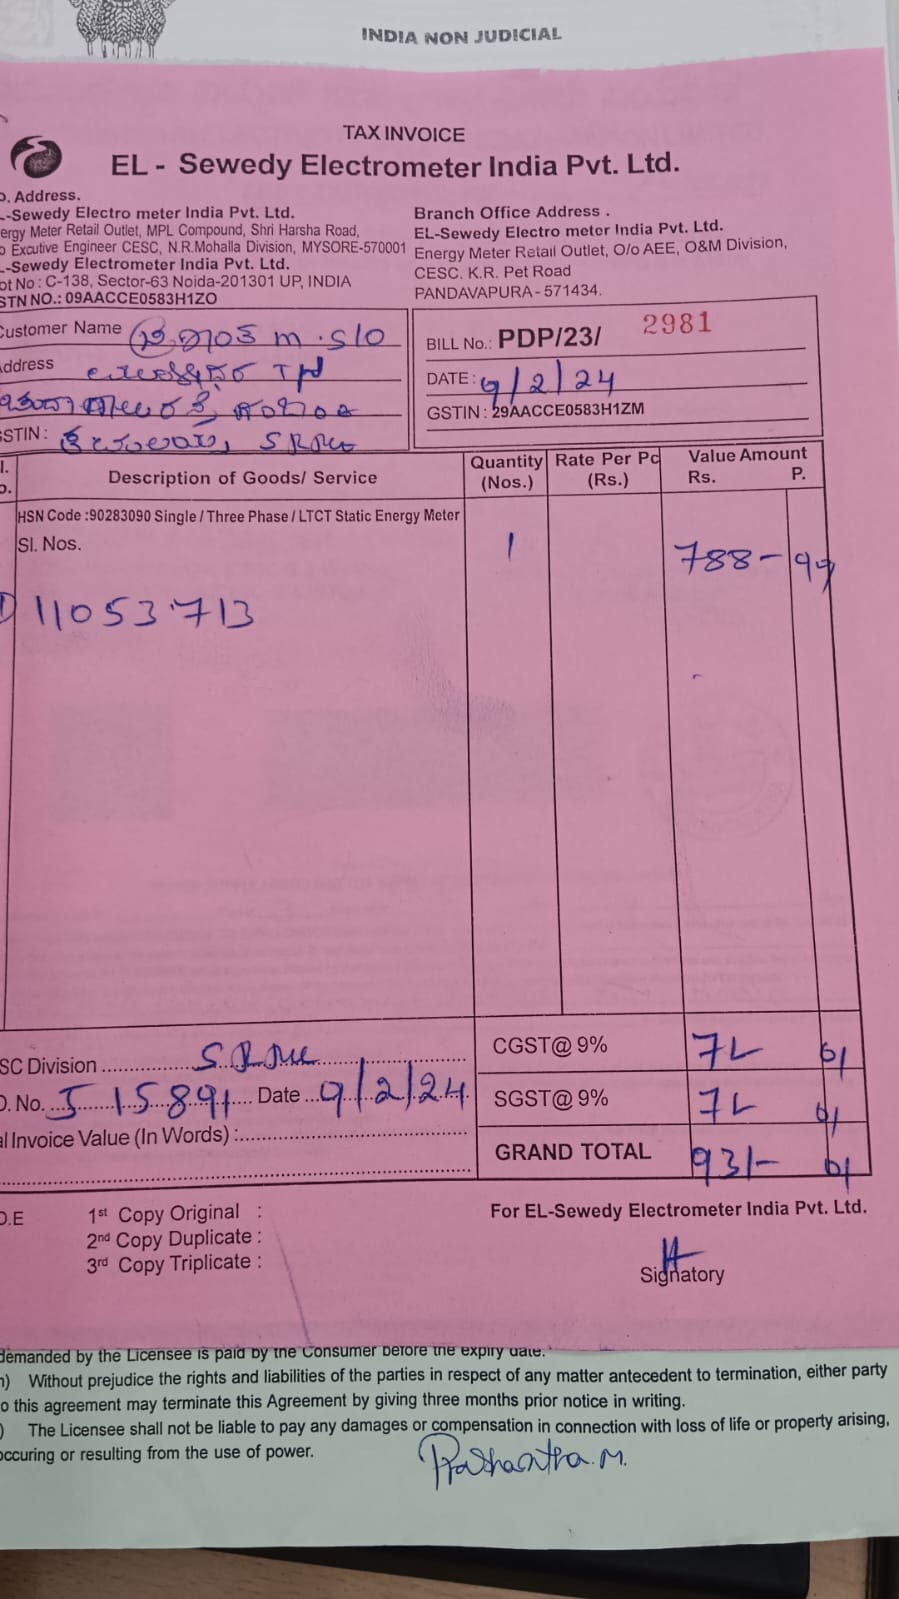 INDIA NON JUDICIAL
TAX INVOICE
EL - Sewedy Electrometer India Pvt. Ltd.
o. Address.
L-Sewedy Electro meter India Pvt. Ltd.
ergy Meter Retail Outlet, MPL Compound, Shri Harsha Road,
o Excutive Engineer CESC, N.R.Mohalla Division, MYSORE-570001
L-Sewedy Electrometer India Pvt. Ltd.
ot No : C-138, Sector-63 Noida-201301 UP, INDIA
STN NO.: 09AACCE0583H1ZO
Branch Office Address .
EL-Sewedy Electro meter India Pvt. Ltd.
Energy Meter Retail Outlet, O/o AEE, O&M Division,
CESC. K.R. Pet Road
PANDAVAPURA - 571434.
Customer Name M . S/O
Address
STIN :
BILL No.: PDP/23/ 2981
DATE : 9/2/24
GSTIN : 29AACCE0583H1ZM
l.
o.
Description of Goods/ Service
Quantity (Nos.)
Rate Per Pc (Rs.)
Value Amount
Rs. P.
HSN Code :90283090 Single / Three Phase / LTCT Static Energy Meter
Sl. Nos.
1 788 - 99
1) 11053713
SC Division
O. No. 515891 Date 9/2/24
al Invoice Value (In Words) :
CGST@ 9% 71 01
SGST@ 9% 71 01
GRAND TOTAL 931- 01
O.E
1st Copy Original :
2nd Copy Duplicate :
3rd Copy Triplicate :
For EL-Sewedy Electrometer India Pvt. Ltd.
Signatory
demanded by the Licensee is paid by the Consumer before the expiry date.
n) Without prejudice the rights and liabilities of the parties in respect of any matter antecedent to termination, either party
o this agreement may terminate this Agreement by giving three months prior notice in writing.
) The Licensee shall not be liable to pay any damages or compensation in connection with loss of life or property arising,
occuring or resulting from the use of power.
Prashantha.M.